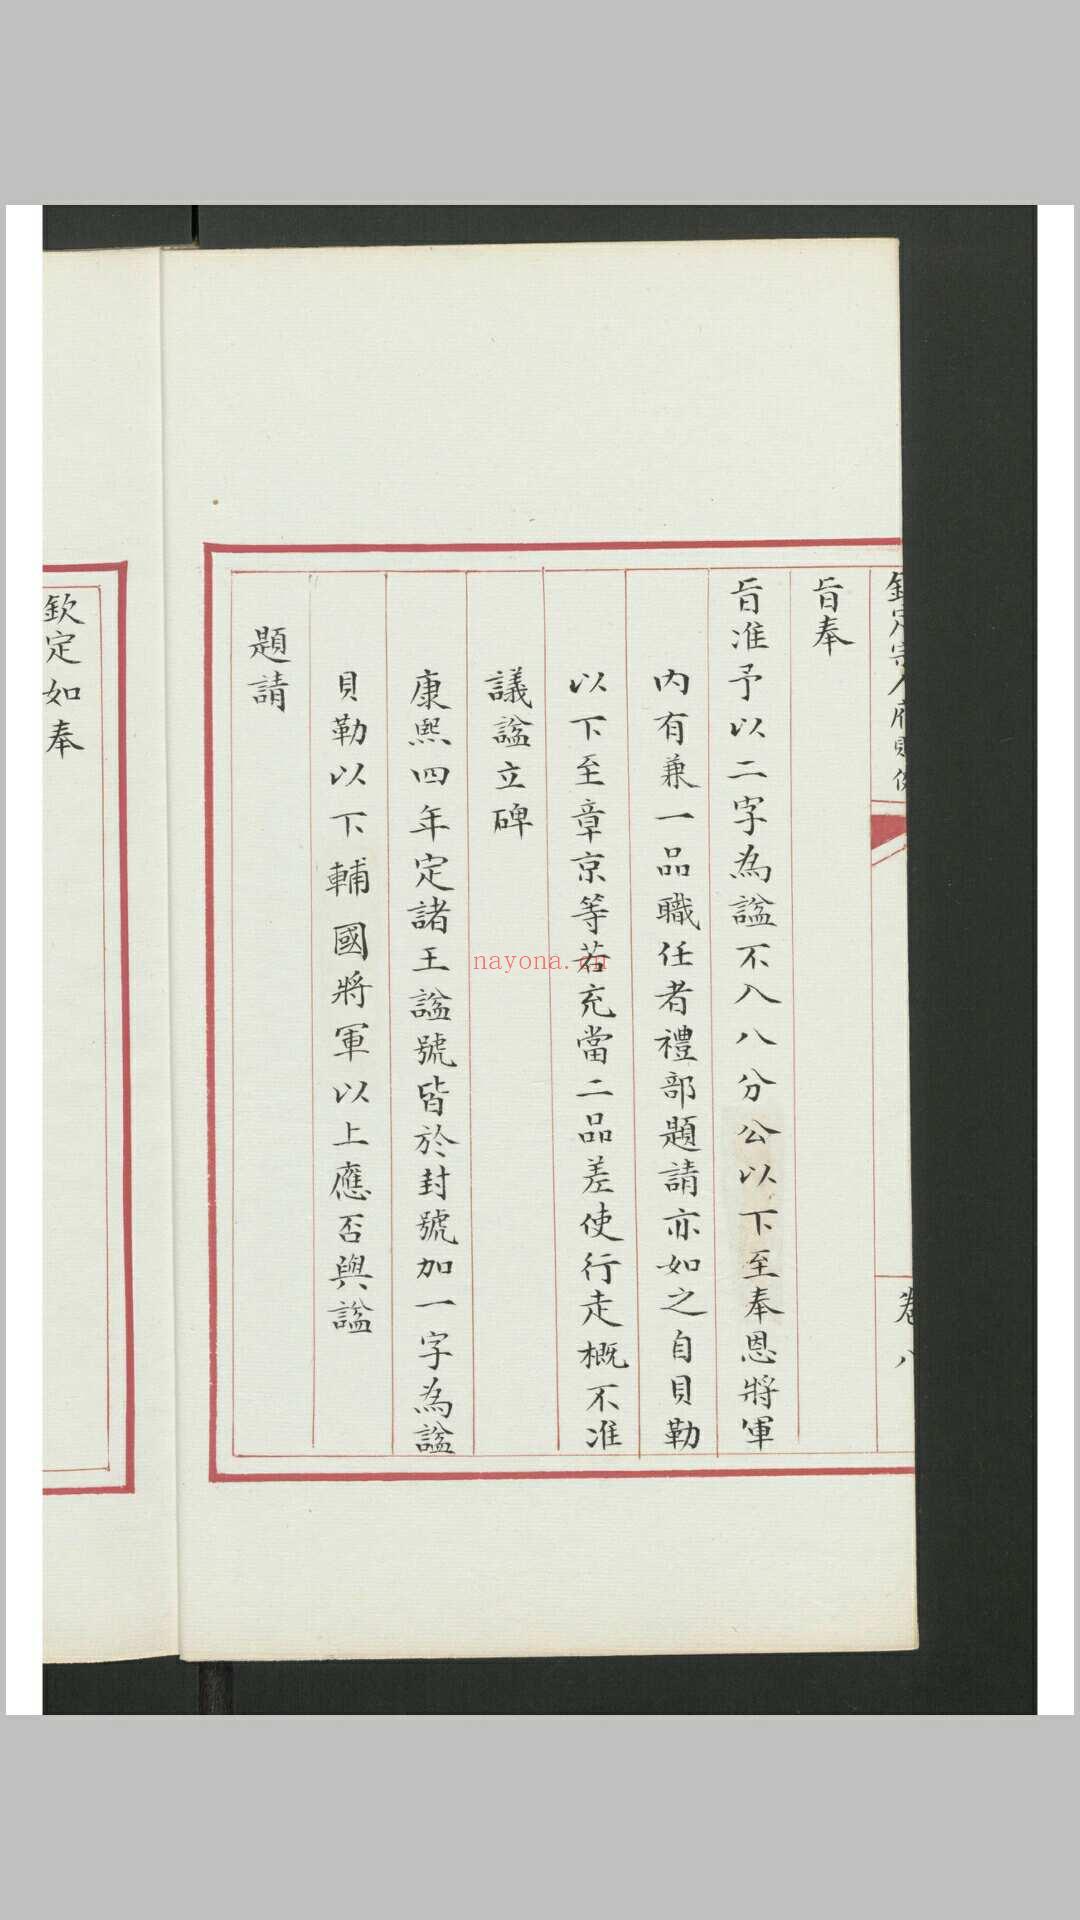 欽定宗人府則例
卷八
旨奉
旨准予以二字為謚不入八分公以下至奉恩將軍
內有兼一品職任者禮部題請亦如之自貝勒
以下至章京等若充當二品差使行走概不准
議謚立碑
康熙四年定諸王謚號皆於封號加一字為謚
貝勒以下輔國將軍以上應否與謚
題請
欽定如奉
nayona.cn